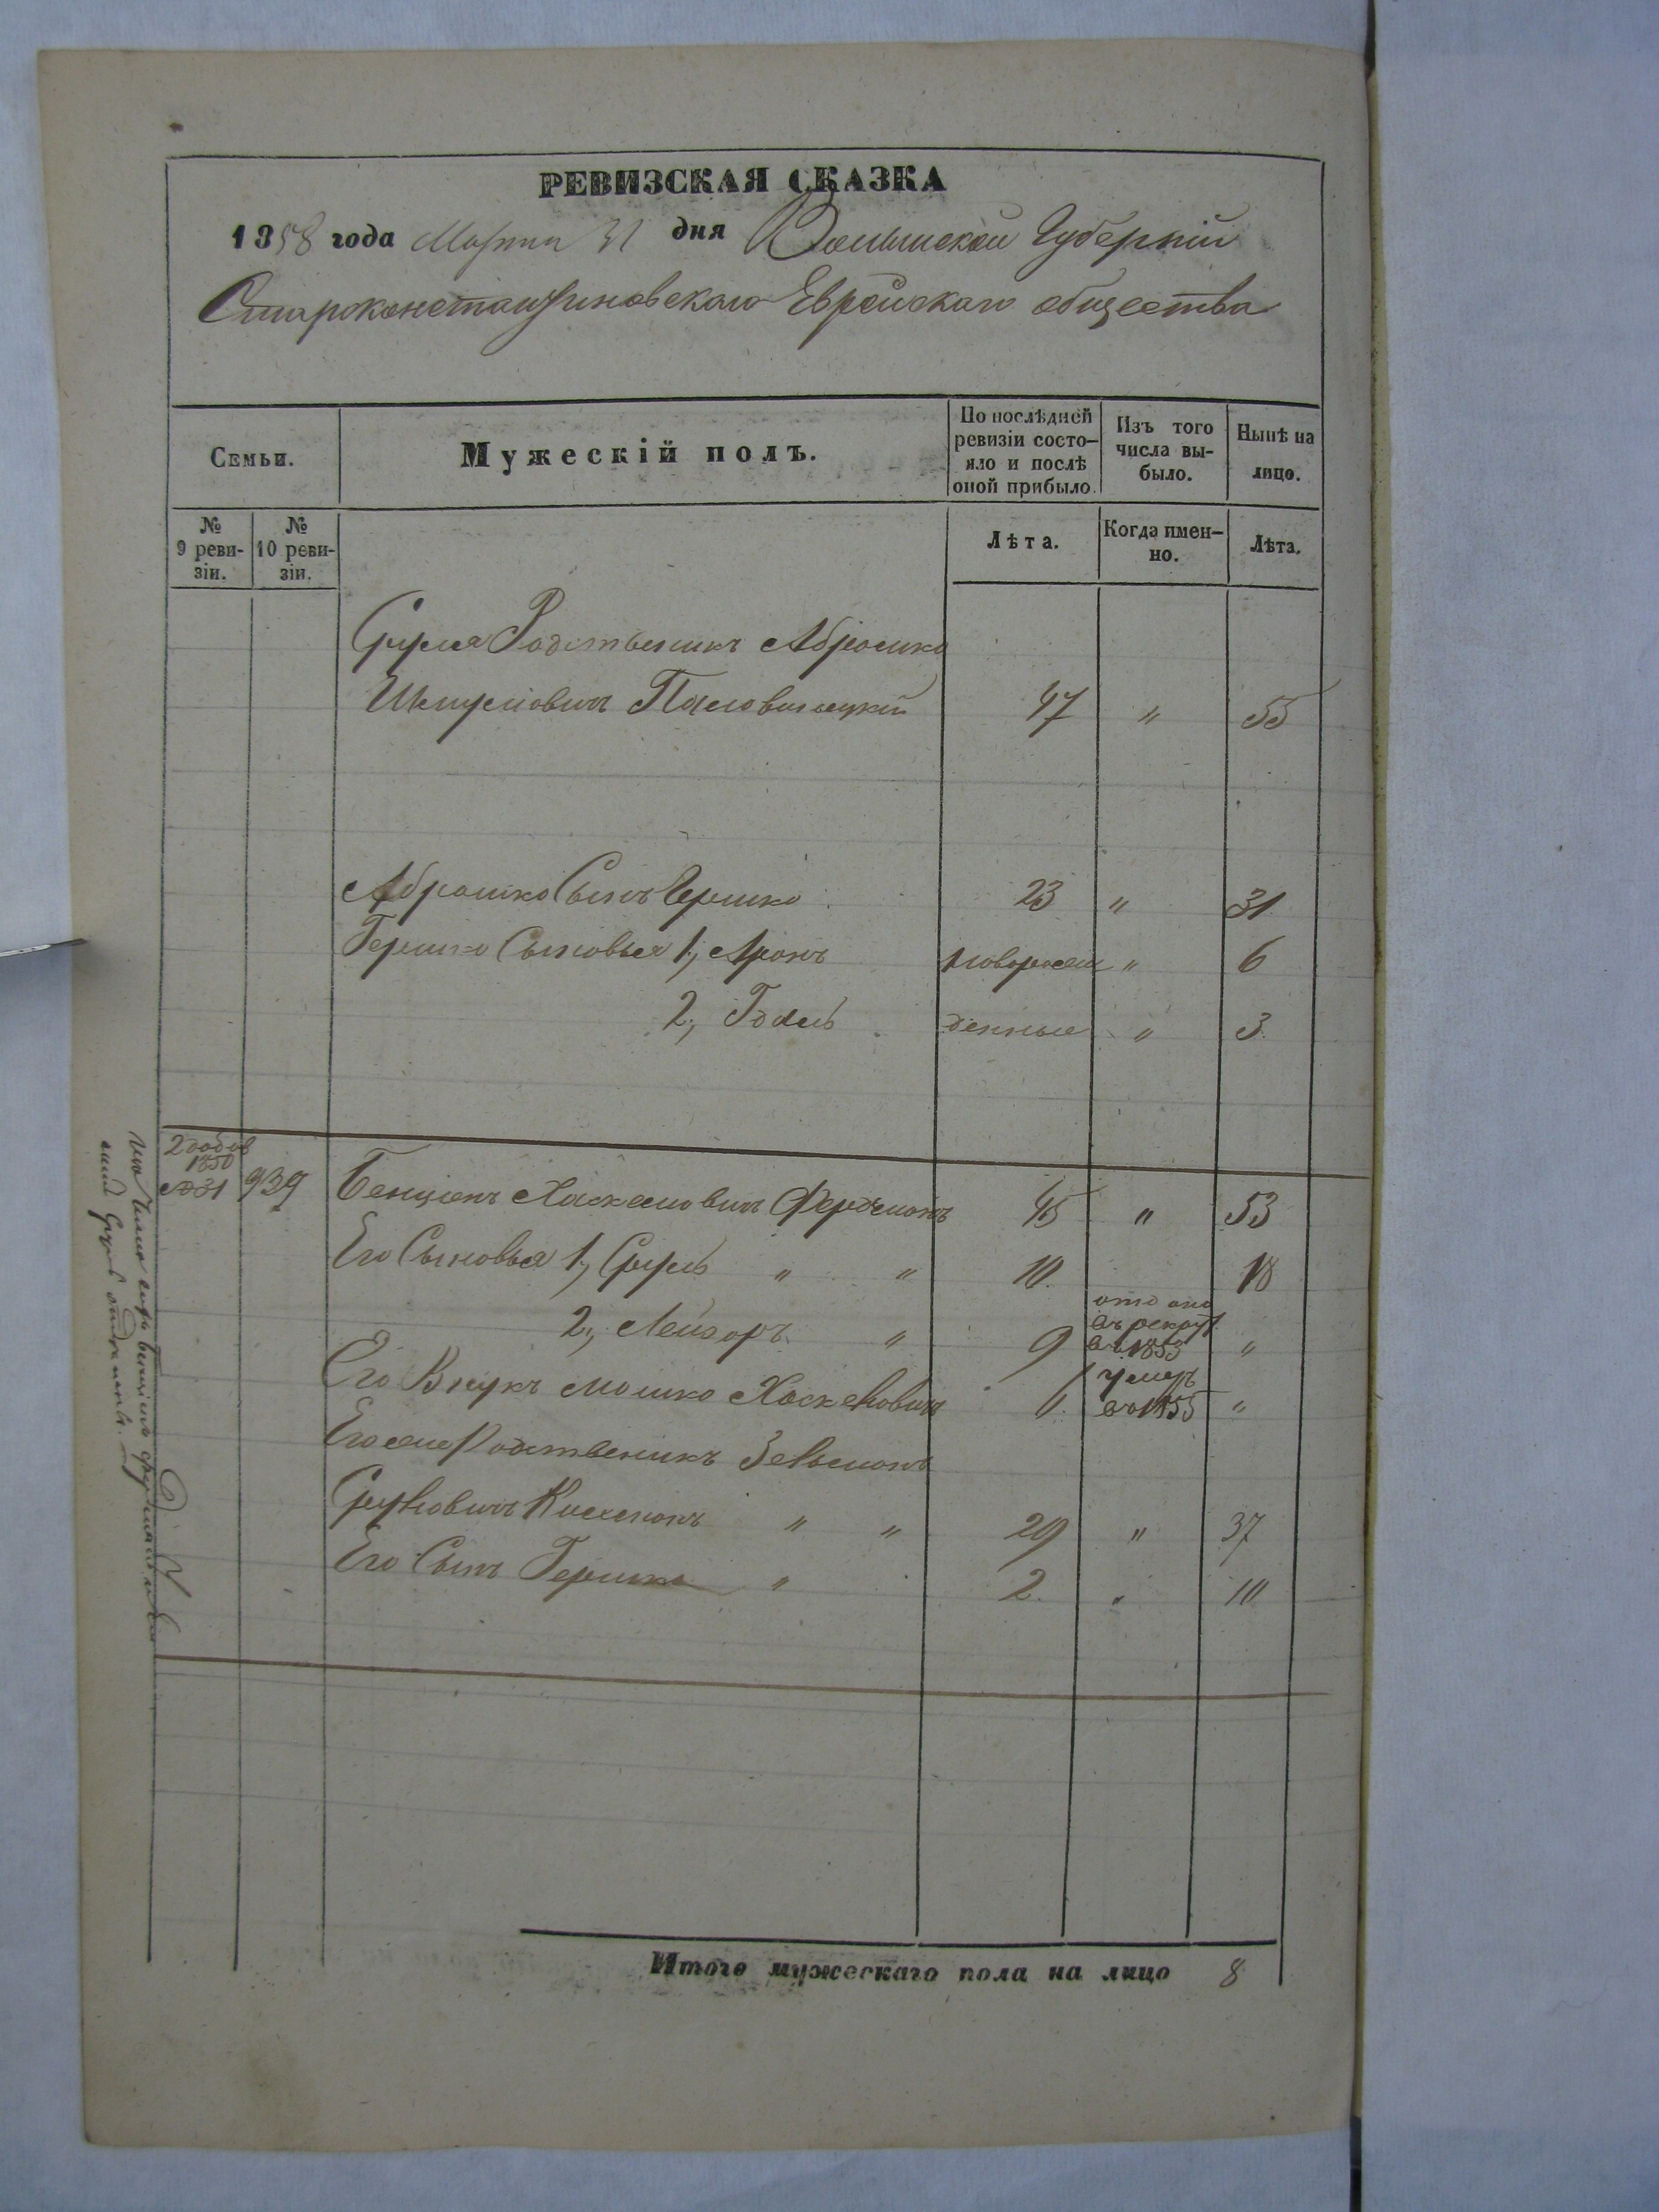 РЕВИЗСКАЯ СКАЗКА
1858 года Марта 31 дня Волынской Губерніи
Староконстантиновскаго Еврейскаго общества
Семьи.
Мужескій полъ.
По послѣдней ревизіи состо-
яло и послѣ
оной прибыло.
Изъ того
числа вы-
было.
Нынѣ на
лицо.
№
9 реви-
зіи.
№
10 реви-
зіи.
Лѣта.
Когда имен-
но.
Лѣта.
Сруля Родственикъ Абрамко
Шмулiовичъ 47 " 55
Абрашко Сынъ Гершко 23 " 31
Гершко Сыновья 1, Аронъ новорож " 6
2, Годель денные " 3
2 добав
1850
№31 939 Бенціонъ Хаскелiовичъ Фердманъ 45 " 53
Его Сыновья 1, Сруль " " 10 18
2, Лейзоръ " 9 "
въ рекрут
въ 1853
Его Внукъ Мошко Хаскелiовичъ 1 умеръ
въ 1855 "
Его же Родственикъ Зельманъ
Срулiовичъ " " 29 " 37
Его Сынъ Гершко " 2 " 10
Итого мужескаго пола на лицо 8